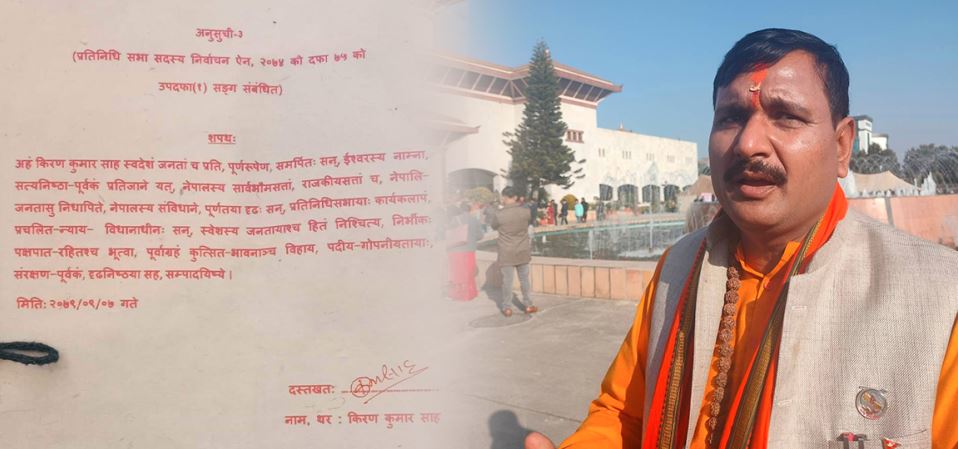 अनुसुची-३
(प्रतिनिधि सभा सदस्य निर्वाचन ऐन, २०७४ को दफा ७५ को
उपदफा(१) सङ्ग संबंधित)
शपथः
अहं किरण कुमार साह स्वदेशं जनतां च प्रति, पूर्णरुपेण, समर्पितः सन्, ईश्वरस्य नाम्ना,
सत्यनिष्ठा-पूर्वकं प्रतिजाने यत्, नेपालस्य सार्वभौमसतां, राजकीयसतां च, नेपालि-
जनतासु निधापिते, नेपालस्य संविधाने, पूर्णतया दृढः सन्, प्रतिनिधिसभायाः कार्यकलापं,
प्रचलित-न्याय- विधानाधीनः सन्, स्वेशस्य जनतायाश्च हितं निश्चित्य, निर्भीकः
पक्षपात-रहितश्च भूत्वा, पूर्वाग्रहं कुत्सित-भावनाञ्च विहाय, पदीय-गोपनीयतायाः,
संरक्षण-पूर्वकं, दृढनिष्ठया सह, सम्पादयिष्ये।
मितिः २०७९/०९/०७ गते
दस्तखतः
नाम, थर : किरण कुमार साह